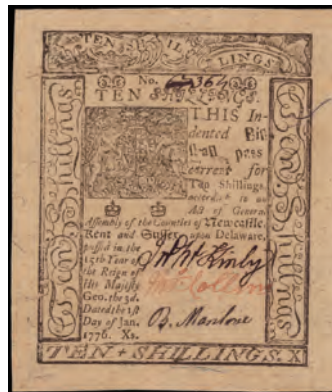 TEN SHIL
LINGS
No. 364
TEN SHILLINGS.
THIS In-
dented Bill
shall pass
current for
Ten Shillings,
accordg. to an
Act of General
Assembly of the Counties of Newcastle,
Kent and Sussex upon Delaware,
passed in the
15th Year of
the Reign of
His Majesty
Geo. the 3d.
Dated the 1st
Day of Jan.
1776. Xs.
B. Manlove
Ten Shillings
Ten Shillings
TEN SHILLINGS. X